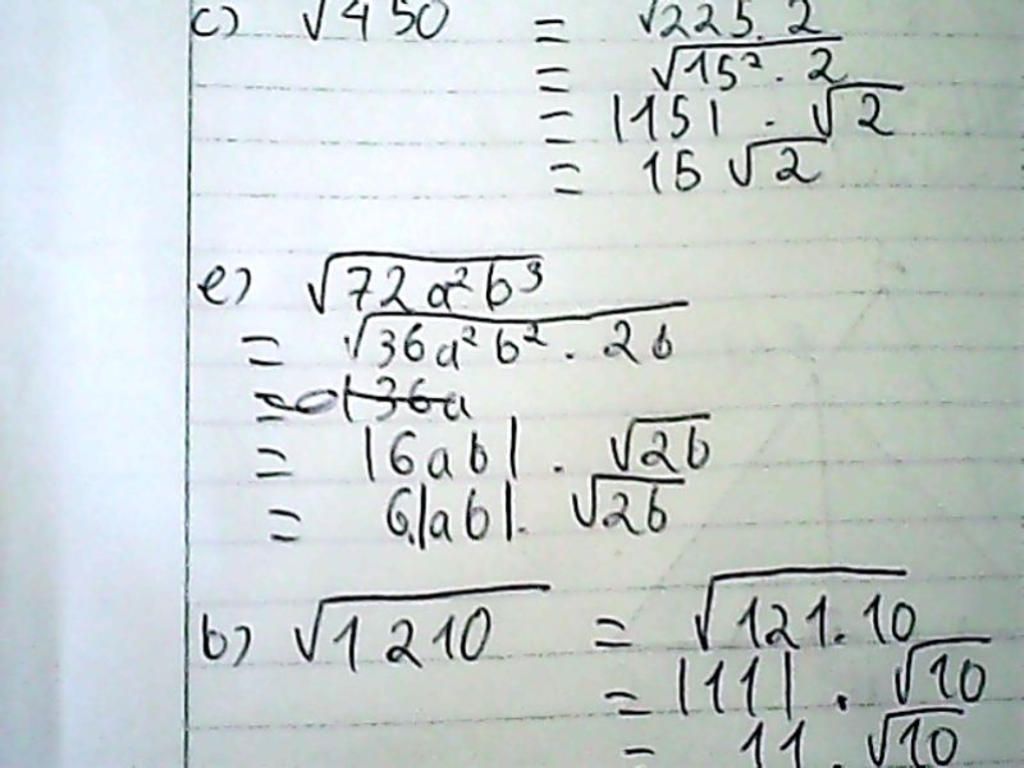 c) √450 = √225.2
= √15² . 2
= |15| . √2
= 15 √2
e) √72a²b³
= √36a²b² . 2b
= |6ab| . √2b
= 6|ab|. √2b
b) √1210 = √121.10
= |11| . √10
= 11 . √10